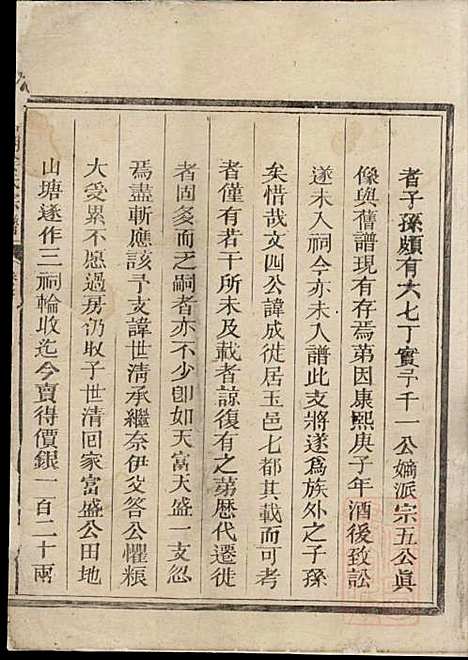 者子孫頗有六七丁實予千一公嫡派宗五公眞
像與舊譜現有存焉第因康熙庚子年酒後致訟
遂未入祠今亦未入譜此支將遂為族外之子孫
矣惜哉文四公諱成徙居玉邑七都其載而可考
者僅有若干所未及載者諒復有之第歷代遷徙
者固多而之嗣者亦不少卽如天富天盛一支忽
焉盡斬應該予支諱世清承繼奈伊父答公懼粮
大受累不愿過房仍取子世清回家富盛公田地
山塘遂作三祠輪收迄今賣得價銀一百二十兩